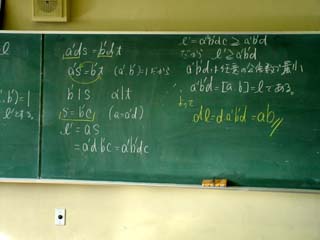 l
b')=1
l'とする。
a'ds = b'dt
a's = b't (a', b')=1 だから
b'|s a'|t
s = b'c (a=a'd)
l' = as
= a'd b'c = a'b'dc
l' = a'b'dc ≧ a'b'd
だから l' ≧ a'b'd
a'b'dは任意の公倍数で最小
∴ a'b'd = [a, b] = l である。
よって
dl = d·a'b'd = ab